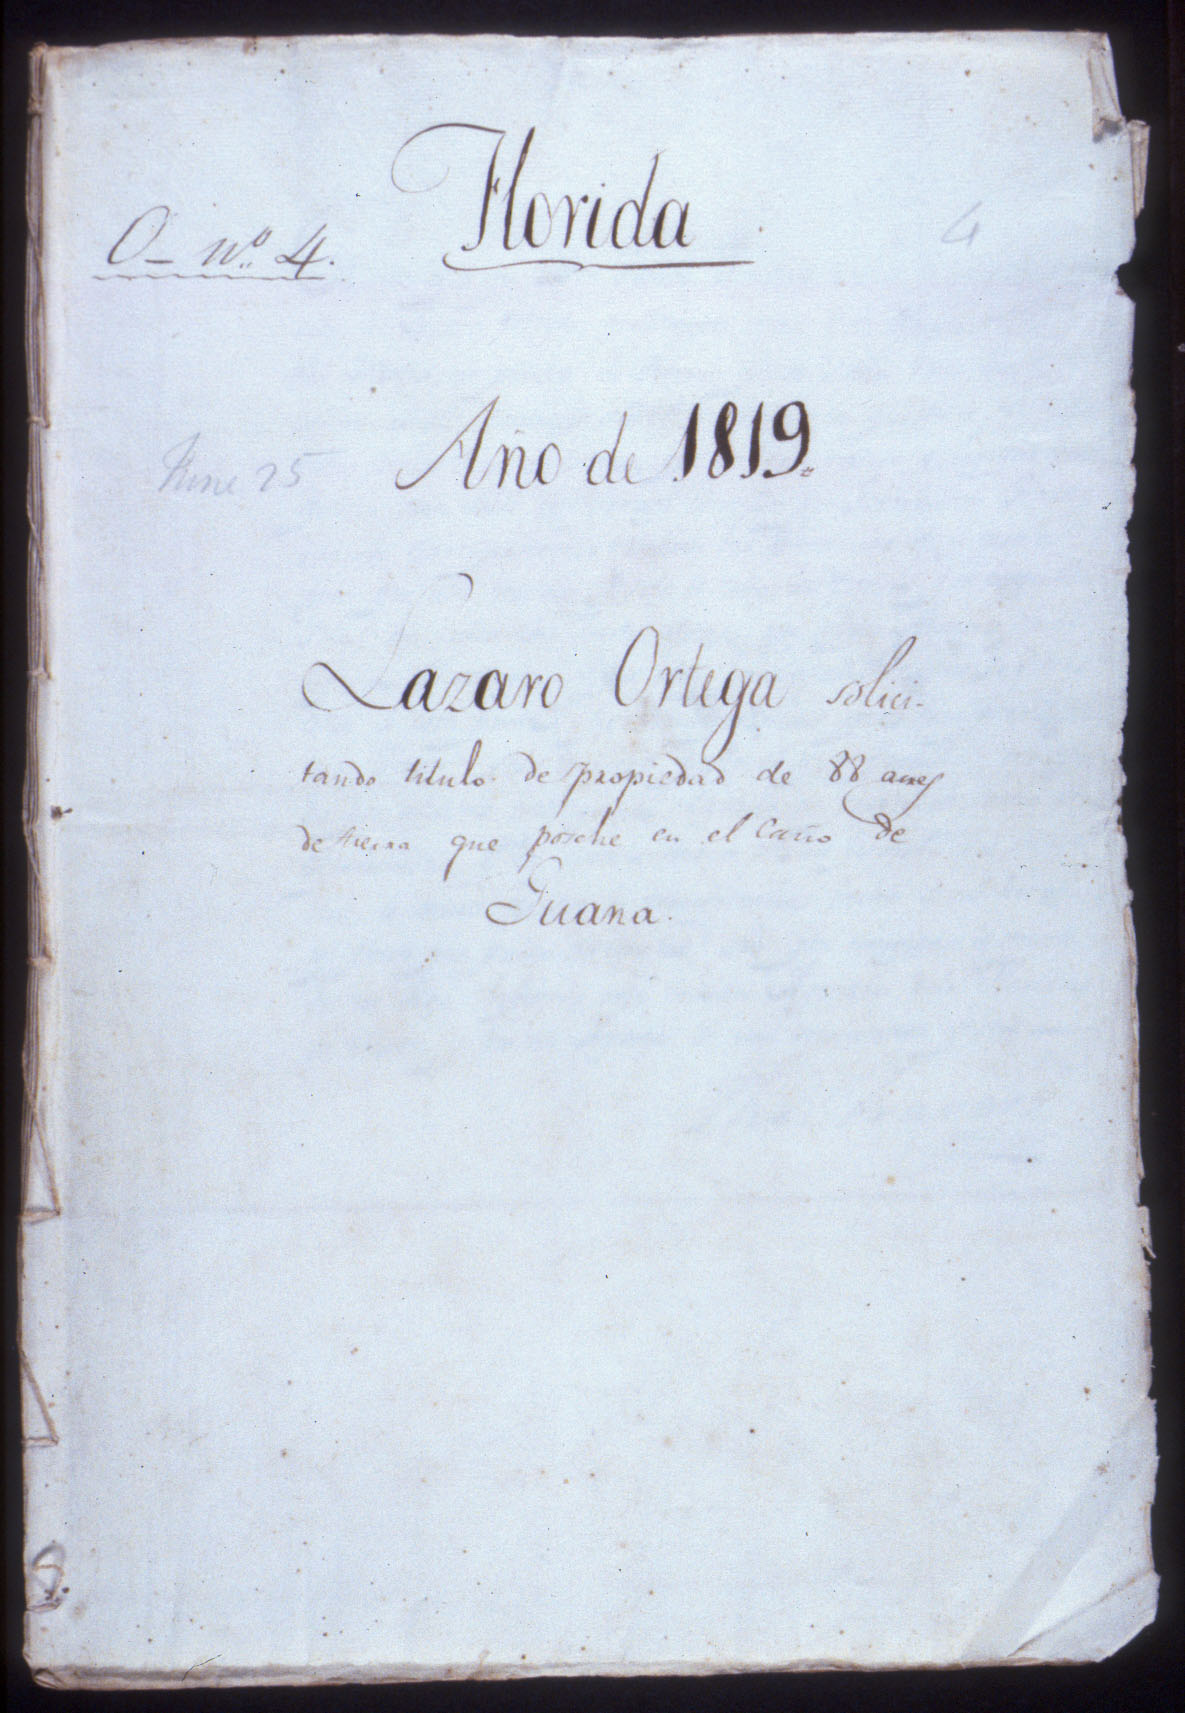 Florida
O- nº 4.
4
Año de 1819.
June 25
Lazaro Ortega solici-
tando titulo de propiedad de 88 acres
de tierra que poséhe en el Caño de
Guana.